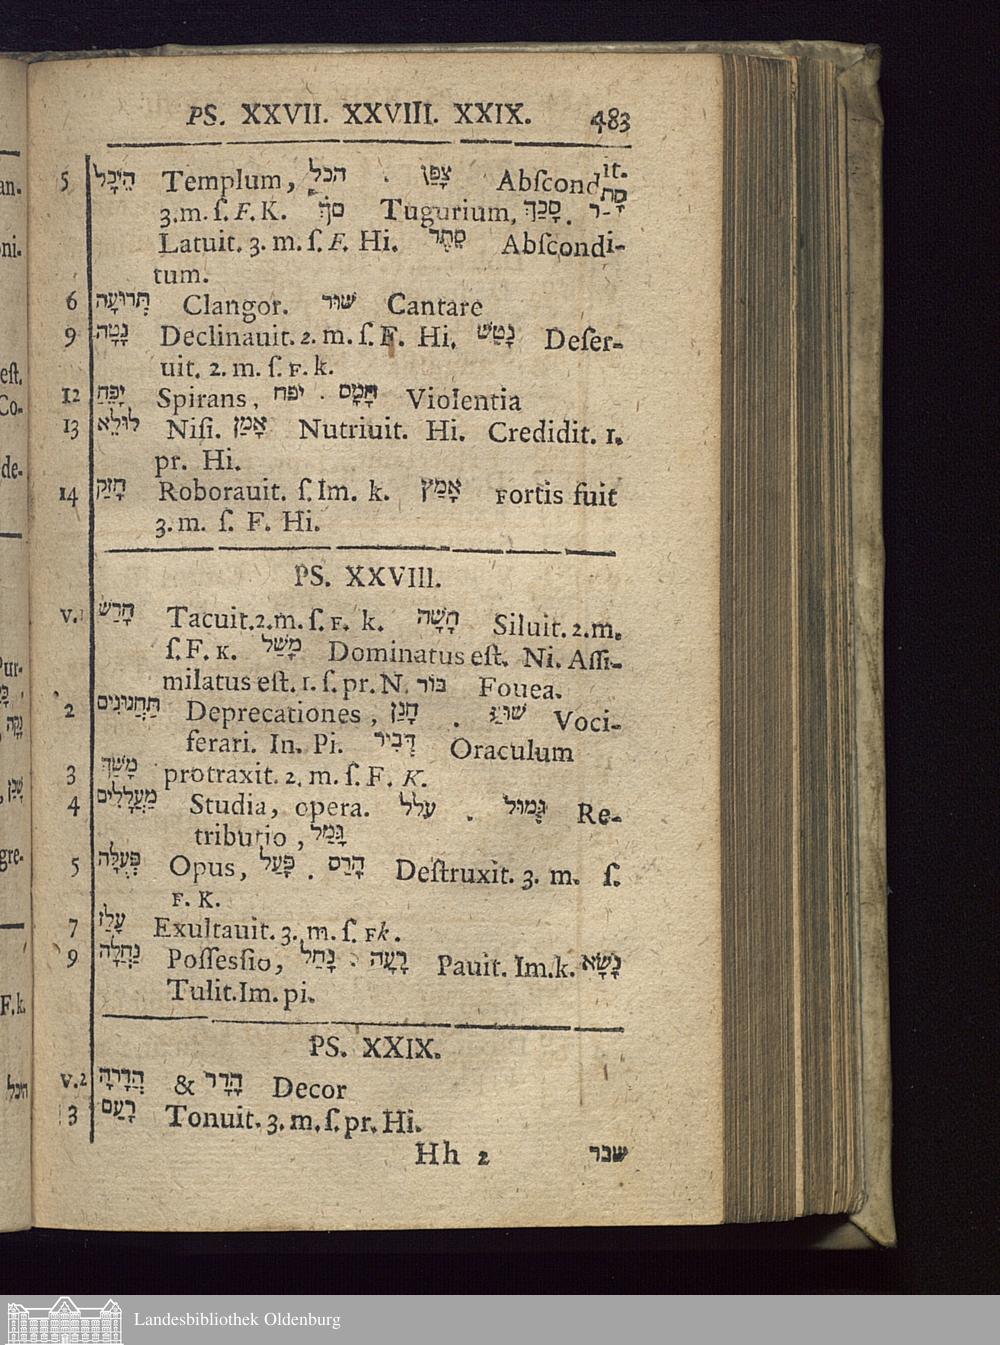 PS. XXVII. XXVIII. XXIX. 483
5 הֵיכָל Templum, הכל . צָפַן Abſcondit.
3.m.ſ.F.K. סךְ Tugurium, סָכַךְ . סָתַר
Latuit. 3. m. ſ. F. Hi. סֵתֶר Abſcondi-
tum.
6 תְּרוּעָה Clangor. שׁוּר Cantare
9 נָטָה Declinauit. 2. m. ſ. F. Hi. נָטַשׁ Deſer-
uit. 2. m. ſ. F. k.
12 יָפֵחַ Spirans, יפח . חָמָס Violentia
13 לוּלֵא Niſi. אָמַן Nutriuit. Hi. Credidit. 1.
pr. Hi.
14 חָזַק Roborauit. ſ. Im. k. אָמַץ Fortis fuit
3. m. ſ. F. Hi.
PS. XXVIII.
v.1 חָרַשׁ Tacuit. 2. m. ſ. F. k. חָשָׁה Siluit. 2. m.
ſ. F. K. מָשַׁל Dominatus eſt. Ni. Aſſi-
milatus eſt. 1. ſ. pr. N. בּוֹר Fouea.
2 תַּחֲנוּנִים Deprecationes, חָנַן . שׁוע Voci-
ferari. In. Pi. דְּבִיר Oraculum
3 מָשַׁךְ protraxit. 2. m. ſ. F. K.
4 מַעֲלָלִים Studia, opera. עלל . גְּמוּל Re-
tributio, גָּמַל
5 פְּעֻלָּה Opus, פָּעַל . הָרַס Deſtruxit. 3. m. ſ.
F. K.
7 עָלַז Exultauit. 3. m. ſ. Fk.
9 נַחֲלָה Poſſeſsio, נָחַל . רָעָה Pauit. Im. k. נָשָׂא
Tulit. Im. pi.
PS. XXIX.
v.2 הֲדָרָה & הָדָר Decor
3 רָעַם Tonuit. 3. m. ſ. pr. Hi.
Hh 2 שבר
Landesbibliothek Oldenburg